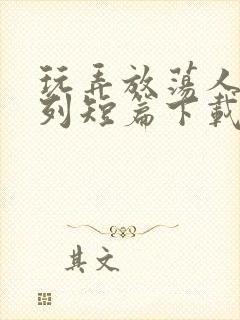 玩弄放荡人
列短篇下载
其文